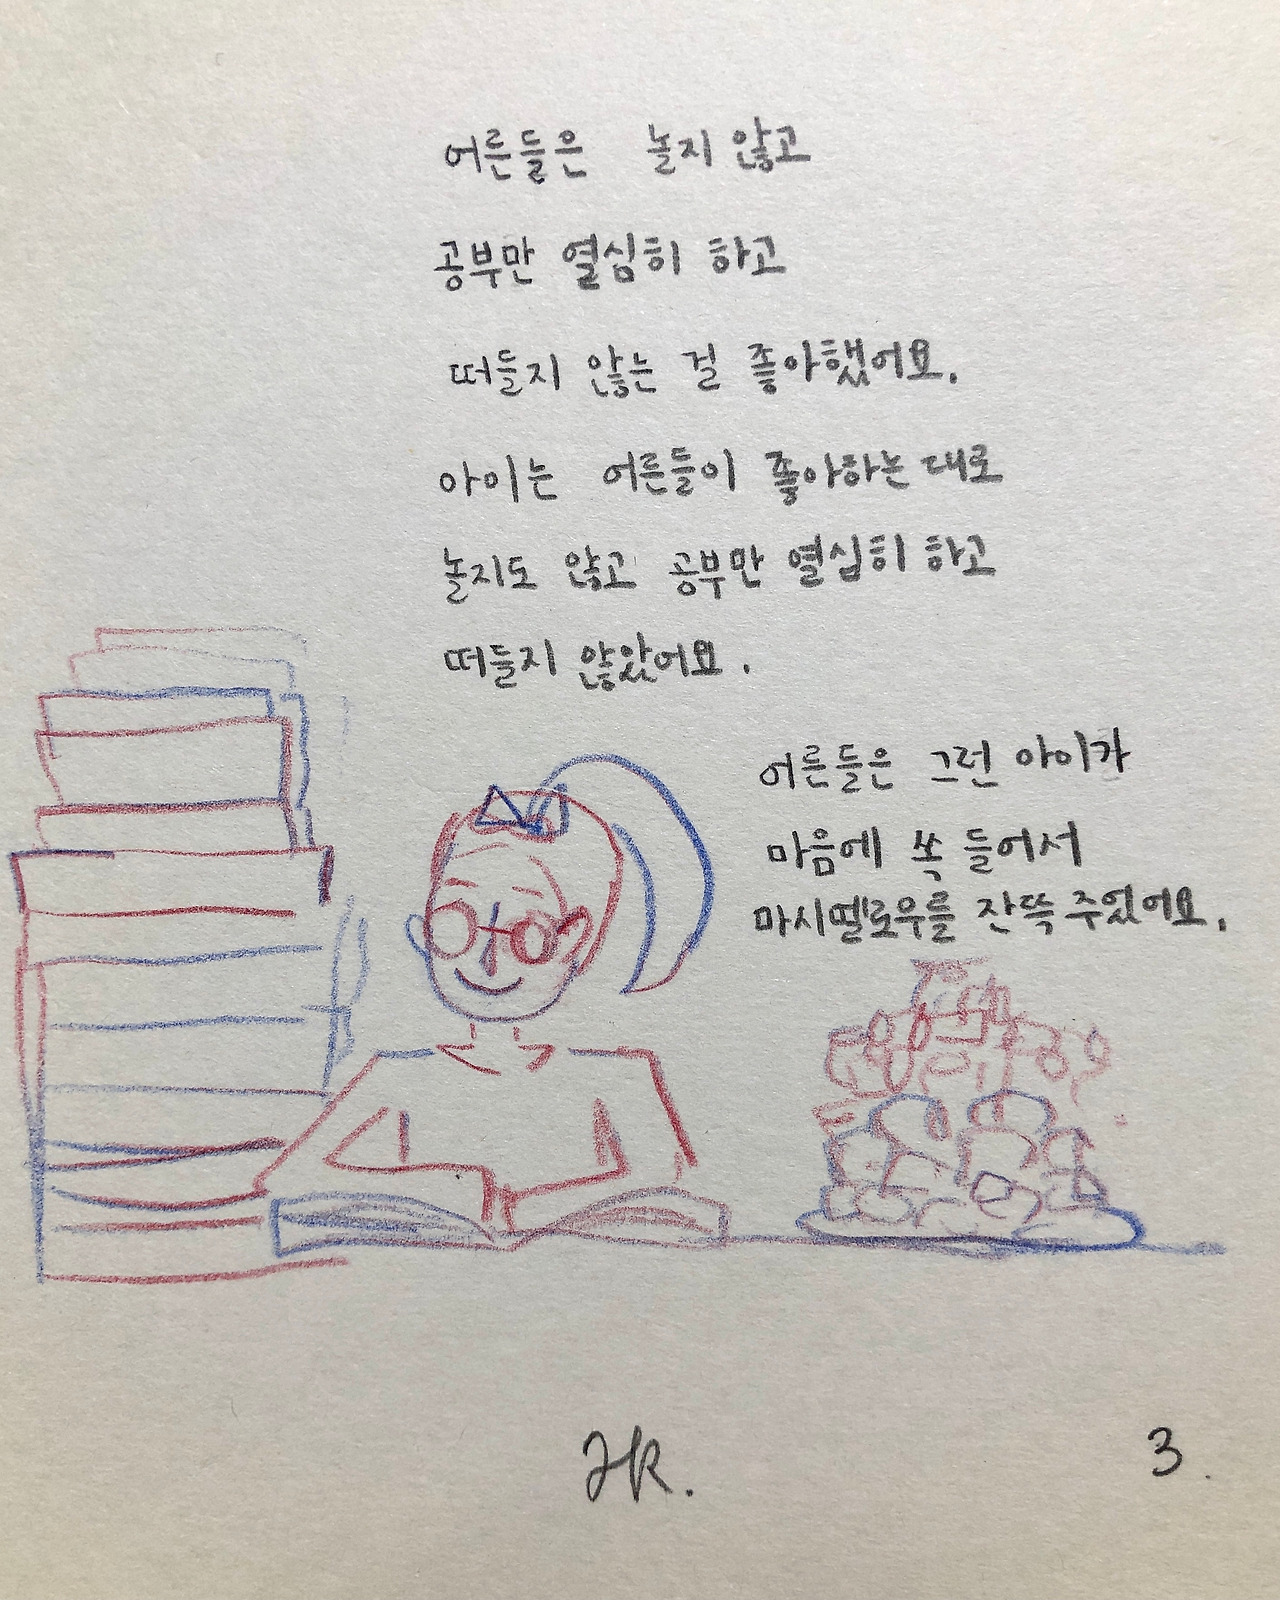 어른들은 놀지 않고
공부만 열심히 하고
떠들지 않는 걸 좋아했어요.
아이는 어른들이 좋아하는 대로
놀지도 않고 공부만 열심히 하고
떠들지 않았어요.
어른들은 그런 아이가
마음에 쏙 들어서
마시멜로우를 잔뜩 주었어요.
3.